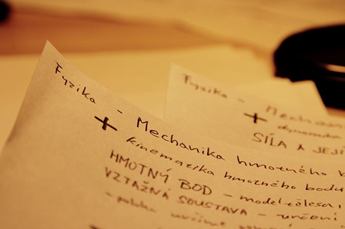 Fyzika - Mechanika hmotného
+ kinematika hmotného bodu
HMOTNÝ BOD - model tělesa,
VZTAŽNÁ SOUSTAVA - určení
- poloha
Fyzika - Mechan
+ dynamika
SÍLA A JEJÍ